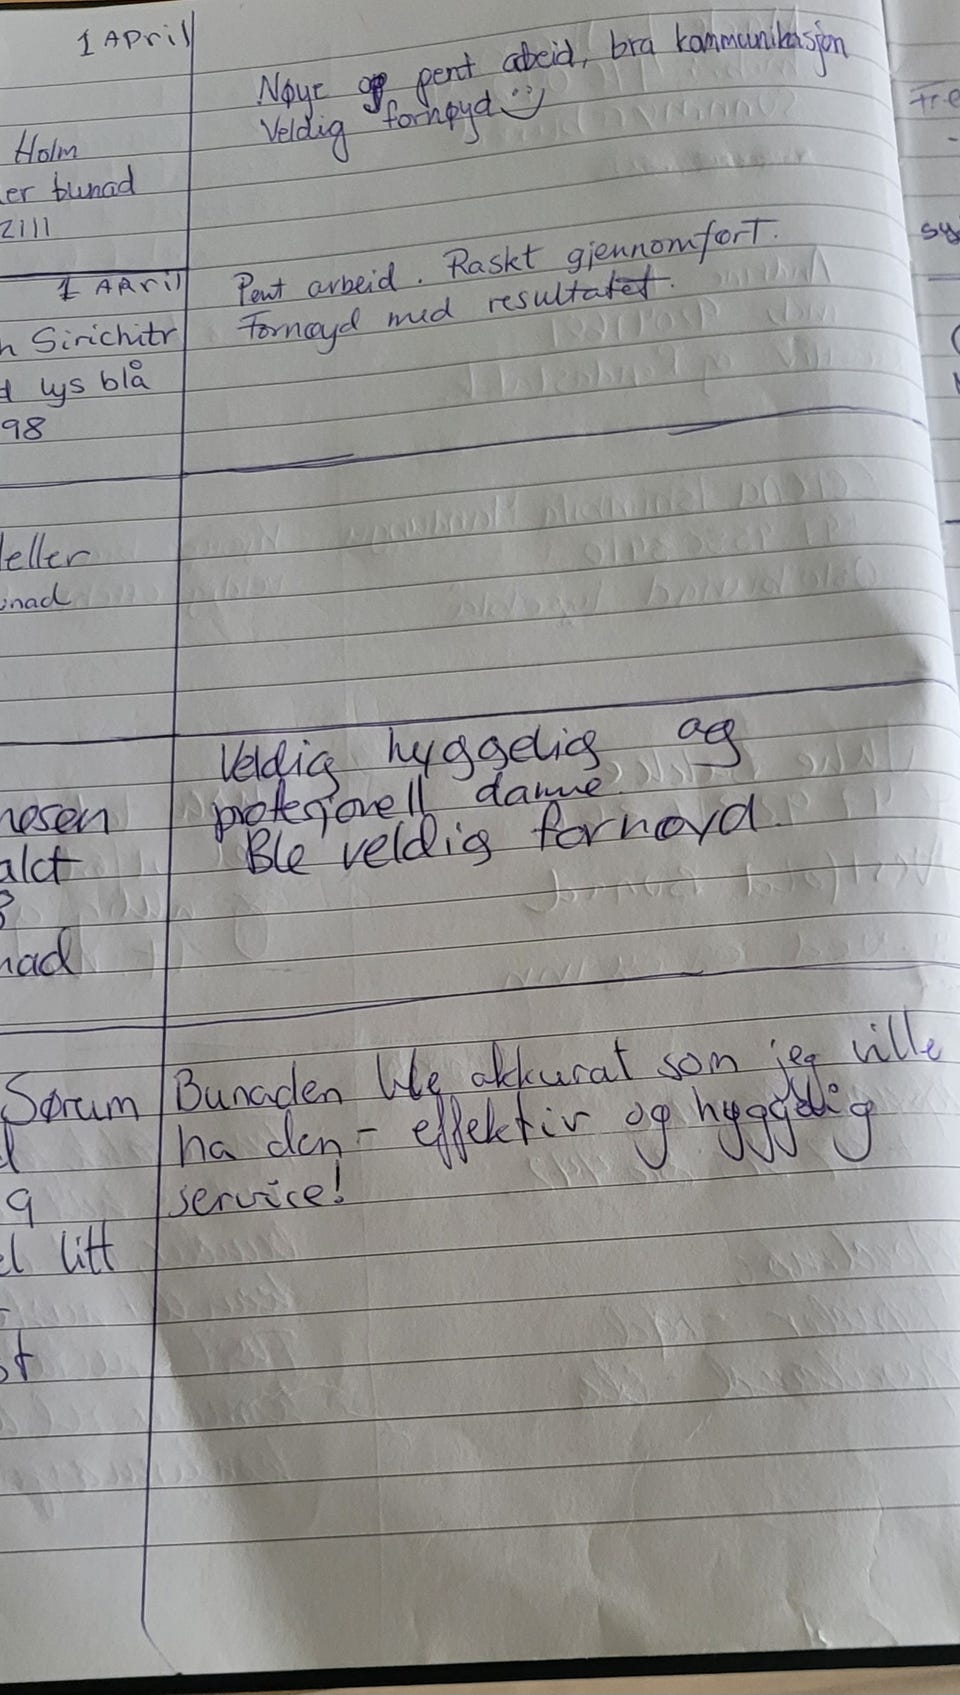 1 April
Nøye og pent abeid, bra kommunikasjon
Veldig fornøyd
Holm
er bunad
2111
1 April
Pent arbeid. Raskt gjennomført.
Fornøyd med resultatet.
Sirichitr
lys blå
98
eller
nad
Veldig hyggelig og
profesjonell dame
Ble veldig fornøyd.
nesen
alct
nad
Bunaden ble akkurat som jeg ville
Sørum
ha den - effektiv og hyggelig
service!
9
litt